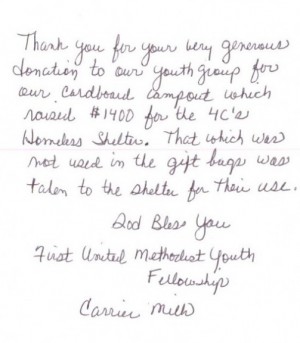 Thank you for your very generous
donation to our youth group for
our cardboard campout which
raised $1400 for the 4C's
Homeless Shelter. That which was
not used in the gift bags was
taken to the shelter for their use.
God Bless You
First United Methodist Youth
Fellowship
Carrier Mills